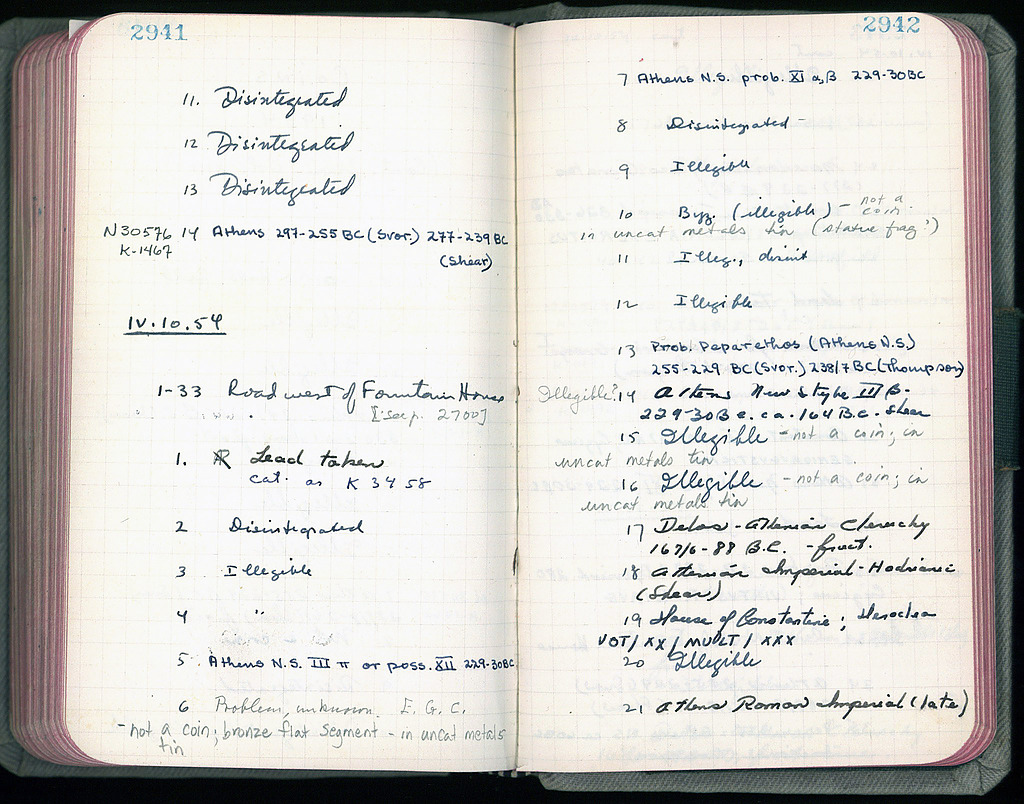 2941
11. Disintegrated
12 Disintegrated
13 Disintegrated
N30576 14 Athens 297-255 BC (Svor.) 277-239 BC
K-1467
(Shear)
IV.10.54
1-33 Road west of Fountain House
" " . [:see p. 2700]
1. Lead taken
cat. as K 3458
2 Disintegrated
3 Illegible
4 "
5 Athens N.S. III π or poss. XII 229-30BC
6 Problem, unknown. E.G.C.
- not a coin; bronze flat segment - in uncat metals
tin
2942
7 Athens N.S. prob. XI α,β 229-30BC
8 Disintegrated -
9 Illegible
10 Byz. (illegible) - not a
coin.
in uncat metals tin (statue frag?)
11 Illeg., disint
12 Illegible
13 Prob. Peparethos (Athens N.S.)
255-229 BC (Svor.) 238/7 BC (Thompson)
Illegible? 14 Athens New Style III β-
229-30 B.C. ca. 164 B.C. Shear
15 Illegible - not a coin; in
uncat metals tin
16 Illegible - not a coin; in
uncat metals tin
17 Delos - Athenian Cleruchy
167/6-88 B.C. -
18 Athenian Imperial - Hadrianic
(Shear)
19 House of Constantine; Heraclea
VOT/XX/MULT/XXX
20 Illegible
21 Athens Roman Imperial (late)